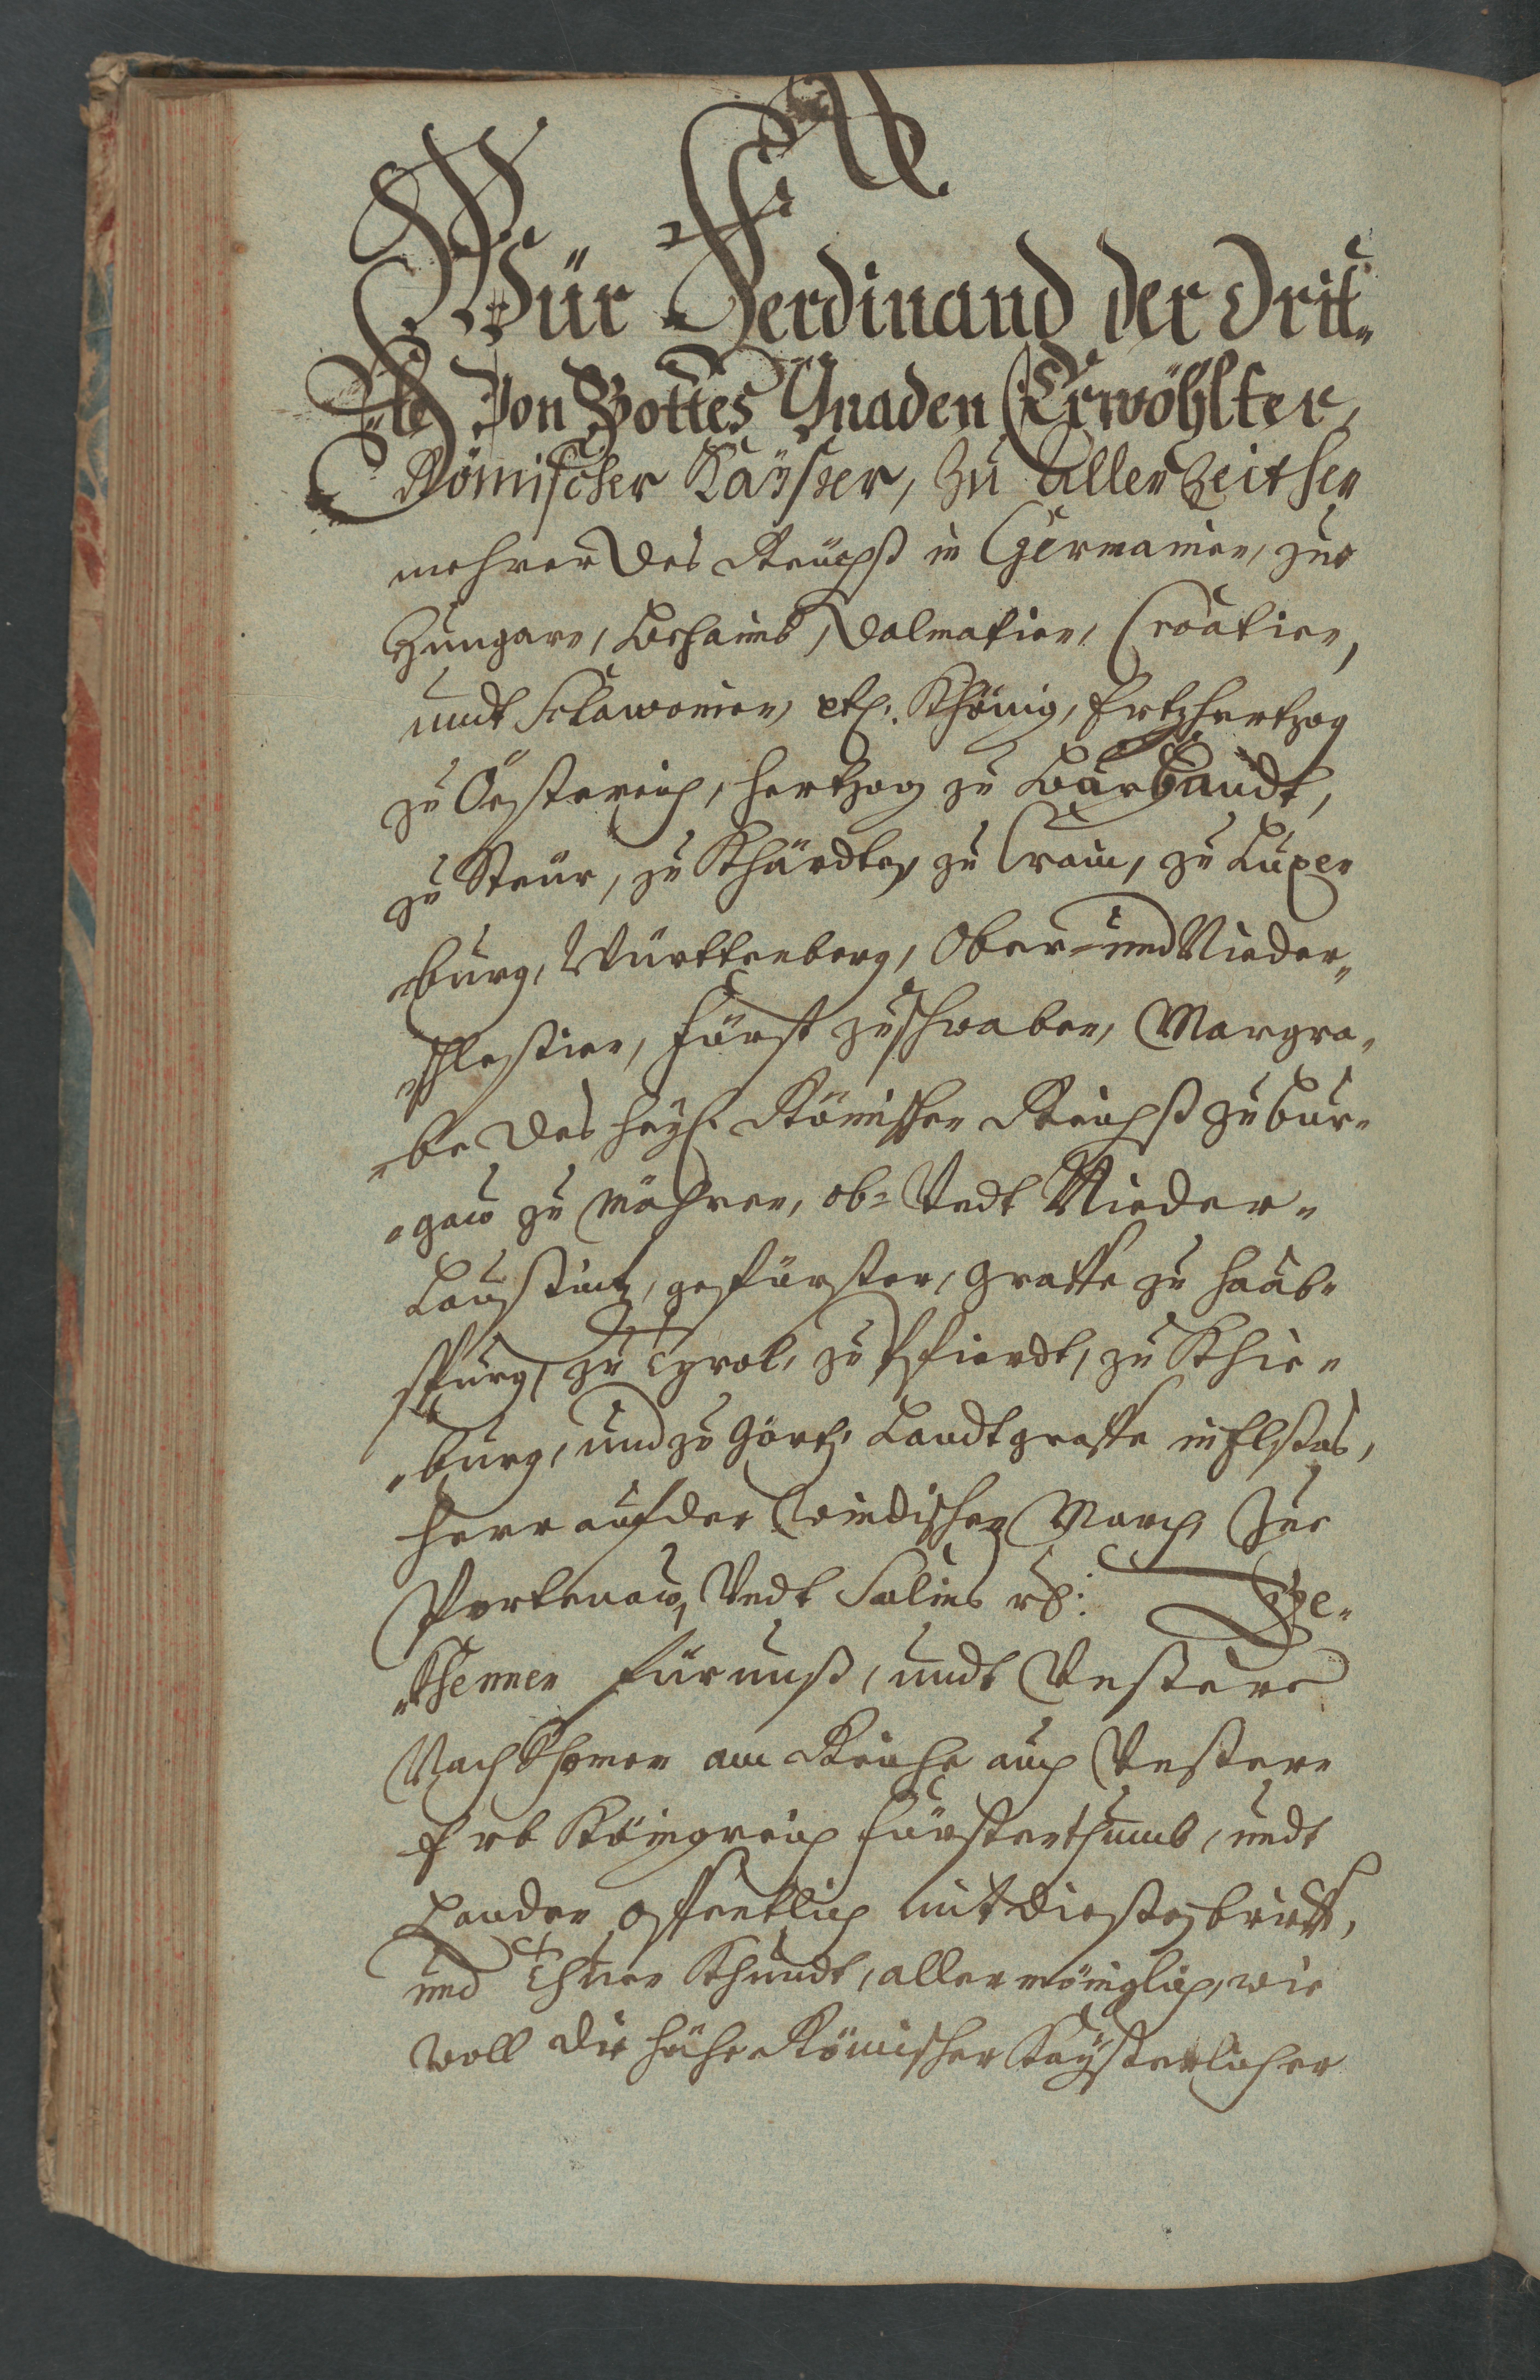 Wür Ferdinand der Drit„
„te Von Gottes Gnaden Erwöhlter,
Römischer Käÿßer, zu Allen Zeithen
mehrer des Reüchß in Germanien, zue
Hungarn, Böhaimb, Dalmatien, Croatien,
undt Sclavonien, etc. Khönig, Ertzhertzog
zu Össtereich, Hertzog zu Bürgundt,
zu Steür, zu Khärdten, zu Crain, zu Luxen
burg, Württenberg, Ober= und Nieder„
„schleßien, Fürst zu Schwaben, Margra„
„be des Heÿl. Römischen Reichß zu Bur„
„gaw zu Möhren, ob= Vndt Nieder„
Laußnitz, gefürster, Graffe zu Haab„
spurg, zu Tyrol, zu Pfierdt, zu Khie„
„burg, und zu Görtz, Landtgraffe in Elßas,
Herr auf der Windischen March, Zue
Portenaw, Vndt Salins etc: Be„
„Khennen für unß, undt Vnßere
Nachkhomen am Reiche auch Vnßern
Erb Königreich Fürstenthumb, undt
Landen offentlich mit dießen brieff,
und Thuen Khundt, allermöniglich, wie
woll die Höhe Römischer Kaÿßerlicher